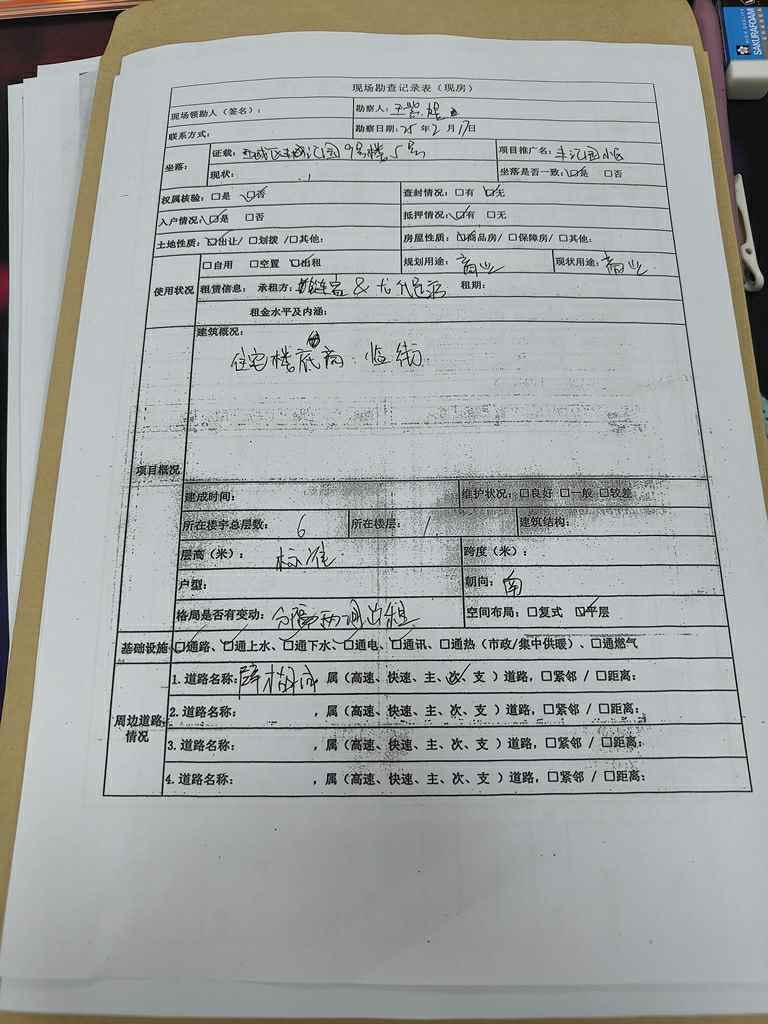 现场勘查记录表（现房）
现场领勘人（签名）： 勘察人：
联系方式： 勘察日期：25 年 2 月 17日
坐落： 证载： 园9号楼5号 项目推广名： 汇园小区
现状： 坐落是否一致：☑是 □否
权属核验：□是 ☑否 查封情况：□有 ☑无
入户情况：☑是 □否 抵押情况：☑有 □无
土地性质：☑出让/ □划拨 /□其他： 房屋性质：☑商品房/ □保障房/ □其他：
使用状况 □自用 □空置 ☑出租 规划用途：商业 现状用途：商业
租赁信息： 承租方： & 租期：
租金水平及内涵：
项目概况 建筑概况：
住宅楼底商 临街
建成时间： 维护状况：□良好 □一般 □较差
所在楼宇总层数： 6 所在楼层： 1 建筑结构：
层高（米）： 标准 跨度（米）：
户型： 朝向：南
格局是否有变动： 出租 空间布局：□复式 ☑平层
基础设施 ☑通路、☑通上水、☑通下水、☑通电、☑通讯、□通热（市政/集中供暖）、□通燃气
周边道路情况 1. 道路名称： ，属（高速、快速、主、次、支 ）道路，□紧邻 / □距离：
2. 道路名称： ，属（高速、快速、主、次、支 ）道路，□紧邻 / □距离：
3. 道路名称： ，属（高速、快速、主、次、支 ）道路，□紧邻 / □距离：
4. 道路名称： ，属（高速、快速、主、次、支 ）道路，□紧邻 / □距离：
SAKURA FOAM